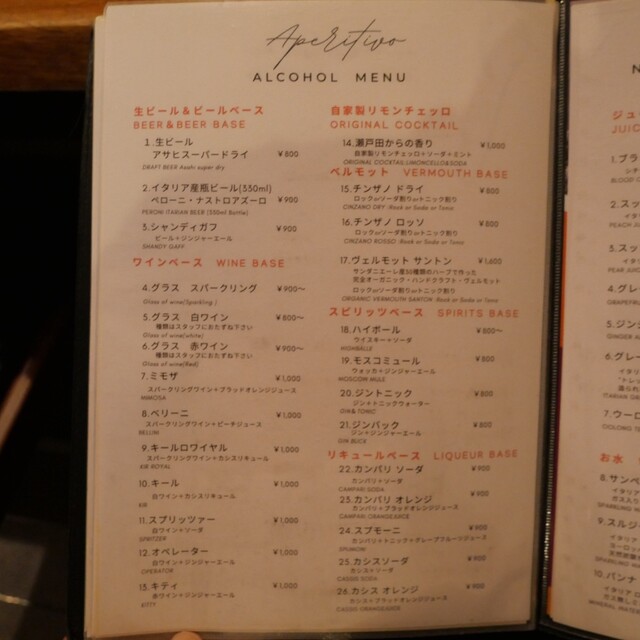 Aperitivo
ALCOHOL MENU
生ビール＆ビールベース
BEER & BEER BASE
1.生ビール
アサヒスーパードライ ¥800
DRAFT BEER Asahi super dry
2.イタリア産瓶ビール(330ml)
ペローニ・ナストロアズーロ ¥900
PERONI ITARIAN BEER (330ml Bottle)
3.シャンディガフ ¥900
ビール+ジンジャーエール
SHANDY GAFF
ワインベース WINE BASE
4.グラス スパークリング ¥900〜
Glass of wine(Sparkling )
5.グラス 白ワイン ¥800〜
種類はスタッフにおたずね下さい
Glass of wine(white)
6.グラス 赤ワイン ¥900〜
種類はスタッフにおたずね下さい
Glass of wine(Red)
7.ミモザ ¥1,000
スパークリングワイン+ブラッドオレンジジュース
MIMOSA
8.ベリーニ ¥1,000
スパークリングワイン+ピーチジュース
BELLINI
9.キールロワイヤル ¥1,000
スパークリングワイン+カシスリキュール
KIR ROYAL
10.キール ¥1,000
白ワイン+カシスリキュール
KIR
11.スプリッツァー ¥1,000
白ワイン+ソーダ
SPRITZER
12.オペレーター ¥1,000
白ワイン+ジンジャーエール
OPERATOR
13.キティ ¥1,000
赤ワイン+ジンジャーエール
KITTY
自家製リモンチェッロ
ORIGINAL COCKTAIL
14.瀬戸田からの香り ¥1,000
自家製リモンチェッロ+ソーダ+ミント
ORIGINAL COCKTAIL LIMONCELLO&SODA
ベルモット VERMOUTH BASE
15.チンザノ ドライ ¥800
ロックorソーダ割りorトニック割り
CINZANO DRY :Rock or Soda or Tonic
16.チンザノ ロッソ ¥800
ロックorソーダ割りorトニック割り
CINZANO ROSSO :Rock or Soda or Tonic
17.ヴェルモット サントン ¥1,600
サンダニエーレ産30種類のハーブで作った
完全オーガニック・ハンドクラフト・ヴェルモット
ロックorソーダ割りorトニック割り
ORGANIC VERMOUTH SANTON :Rock or Soda or Tonic
スピリッツベース SPIRITS BASE
18.ハイボール ¥800〜
ウイスキー+ソーダ
HIGHBALLE
19.モスコミュール ¥800
ウォッカ+ジンジャーエール
MOSCOW MULE
20.ジントニック ¥800
ジン+トニックウォーター
GIN& TONIC
21.ジンバック ¥800
ジン+ジンジャーエール
GIN BUCK
リキュールベース LIQUEUR BASE
22.カンパリ ソーダ ¥900
カンパリ+ソーダ
CAMPARI SODA
23.カンパリ オレンジ ¥900
カンパリ+ブラッドオレンジジュース
CAMPARI ORANGEJUICE
24.スプモーニ ¥900
カンパリ+トニック+グレープフルーツジュース
SPUMONI
25.カシスソーダ ¥900
カシス+ソーダ
CASSIS SODA
26.カシス オレンジ ¥900
カシス+ブラッドオレンジジュース
CASSIS ORANGEJUICE
N
ジュ
JUIC
1.ブラ
BLOOD
2.スッ
イタリ
PEACH JU
3.スッ
イタリ
PEAR JUIC
4.グレ
GRAPEFRU
5.ジン
GINGER A
6.グレ
イタリ
ITARIAN GR
7.ウーロ
OOLONG T
お水
8.サンペ
イタリア
ガス入り
SPARKLING W
9.スルジ
イタリア
ヨーロッパ
SPARKLING WA
10.パンナ
イタリア
MINERAL WATE